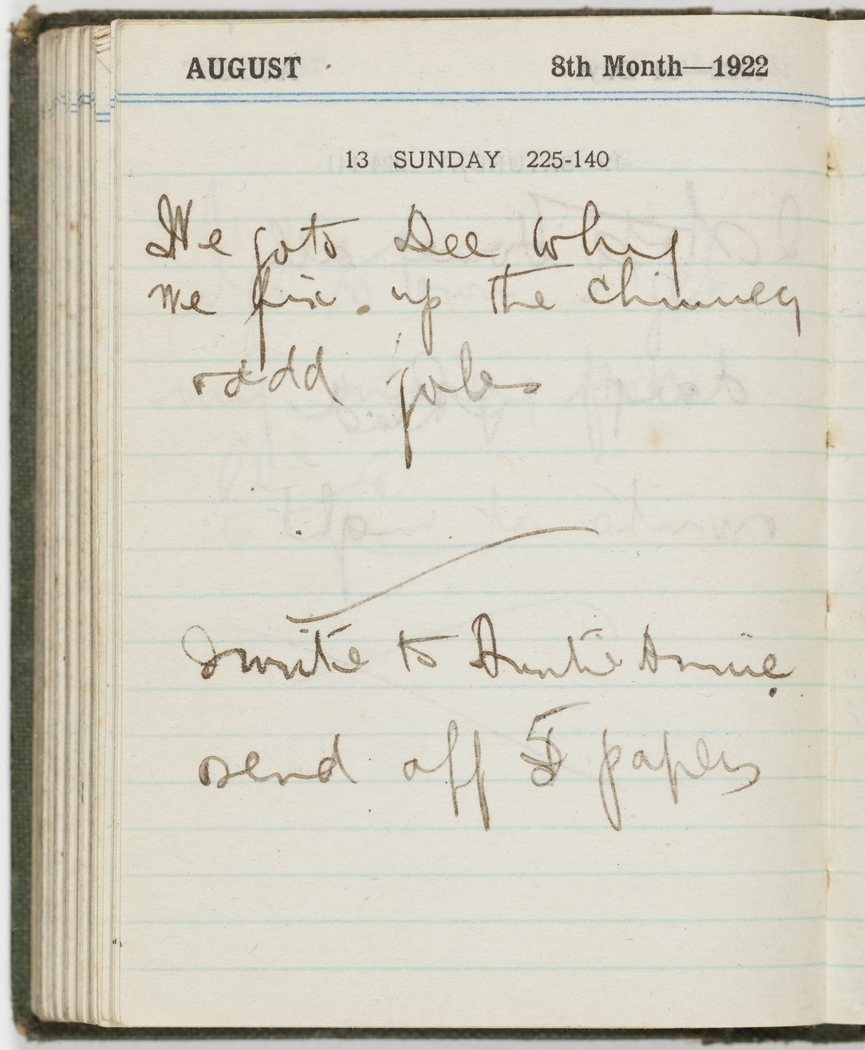 AUGUST 8th Month—1922
13 SUNDAY 225-140
We go to Dee Why
we fix up the chimney
odd jobs
I write to Auntie Annie
send off 5 papers